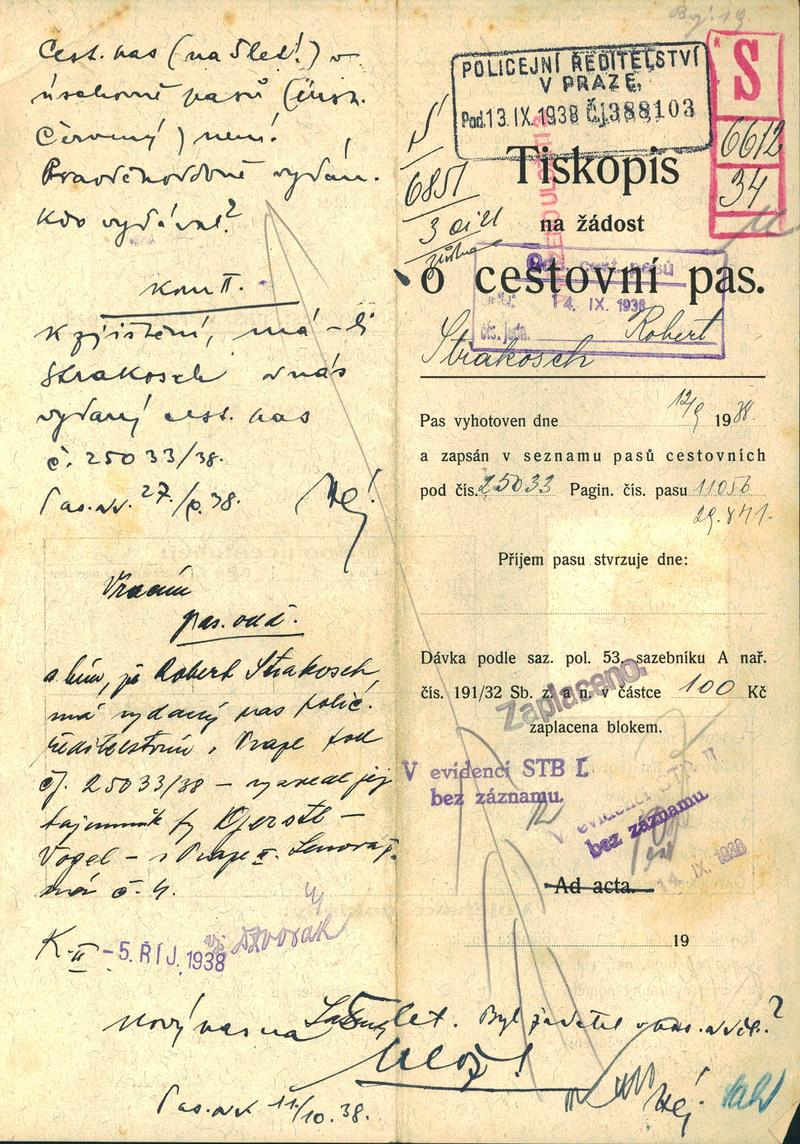 Cest. pas (na 5 let!) v
úschovně pasů (úřed.
Červený) není!
vydán.
Kdo vydával?
kom II.
K zjištění, má-li
Strakosch u nás
vydaný cest. pas
č. 25033/38.
Pas. 27./9.38.
Vracím
pas. odd.
s tím, že Robert Strakosch,
má vydaný pas polic.
ředitelstvím v Praze pod
čj. 25033/38 – vyzvedl jej
tajemník fy
Vogel – v Praze II.
č. 4.
K-II -5. ŘÍJ. 1938 Dvořák
Nový pas na let. Byl žadatel ?
Ulož!
Pas. 11/10.38.
POLICEJNÍ ŘEDITELSTVÍ
V PRAZE,
Pod. 13. IX. 1938 Čj 388103
S
6612
34
S
6851
3
Tiskopis
na žádost
o cestovní pas.
Odd. cest. pasů
14. IX. 1938
čís. jedn.
Strakosch Robert
Pas vyhotoven dne 12/9 1938.
a zapsán v seznamu pasů cestovních
pod čís. 25033 Pagin. čís. pasu 11056
29.841.
Příjem pasu stvrzuje dne:
Dávka podle saz. pol. 53, sazebníku A nař.
čís. 191/32 Sb. z. a n. v částce 100 Kč
Zaplaceno.
zaplacena blokem.
V evidenci STB I.
bez záznamu.
V evidenci STB II
bez záznamu.
14. IX. 1938
Ad acta.
19